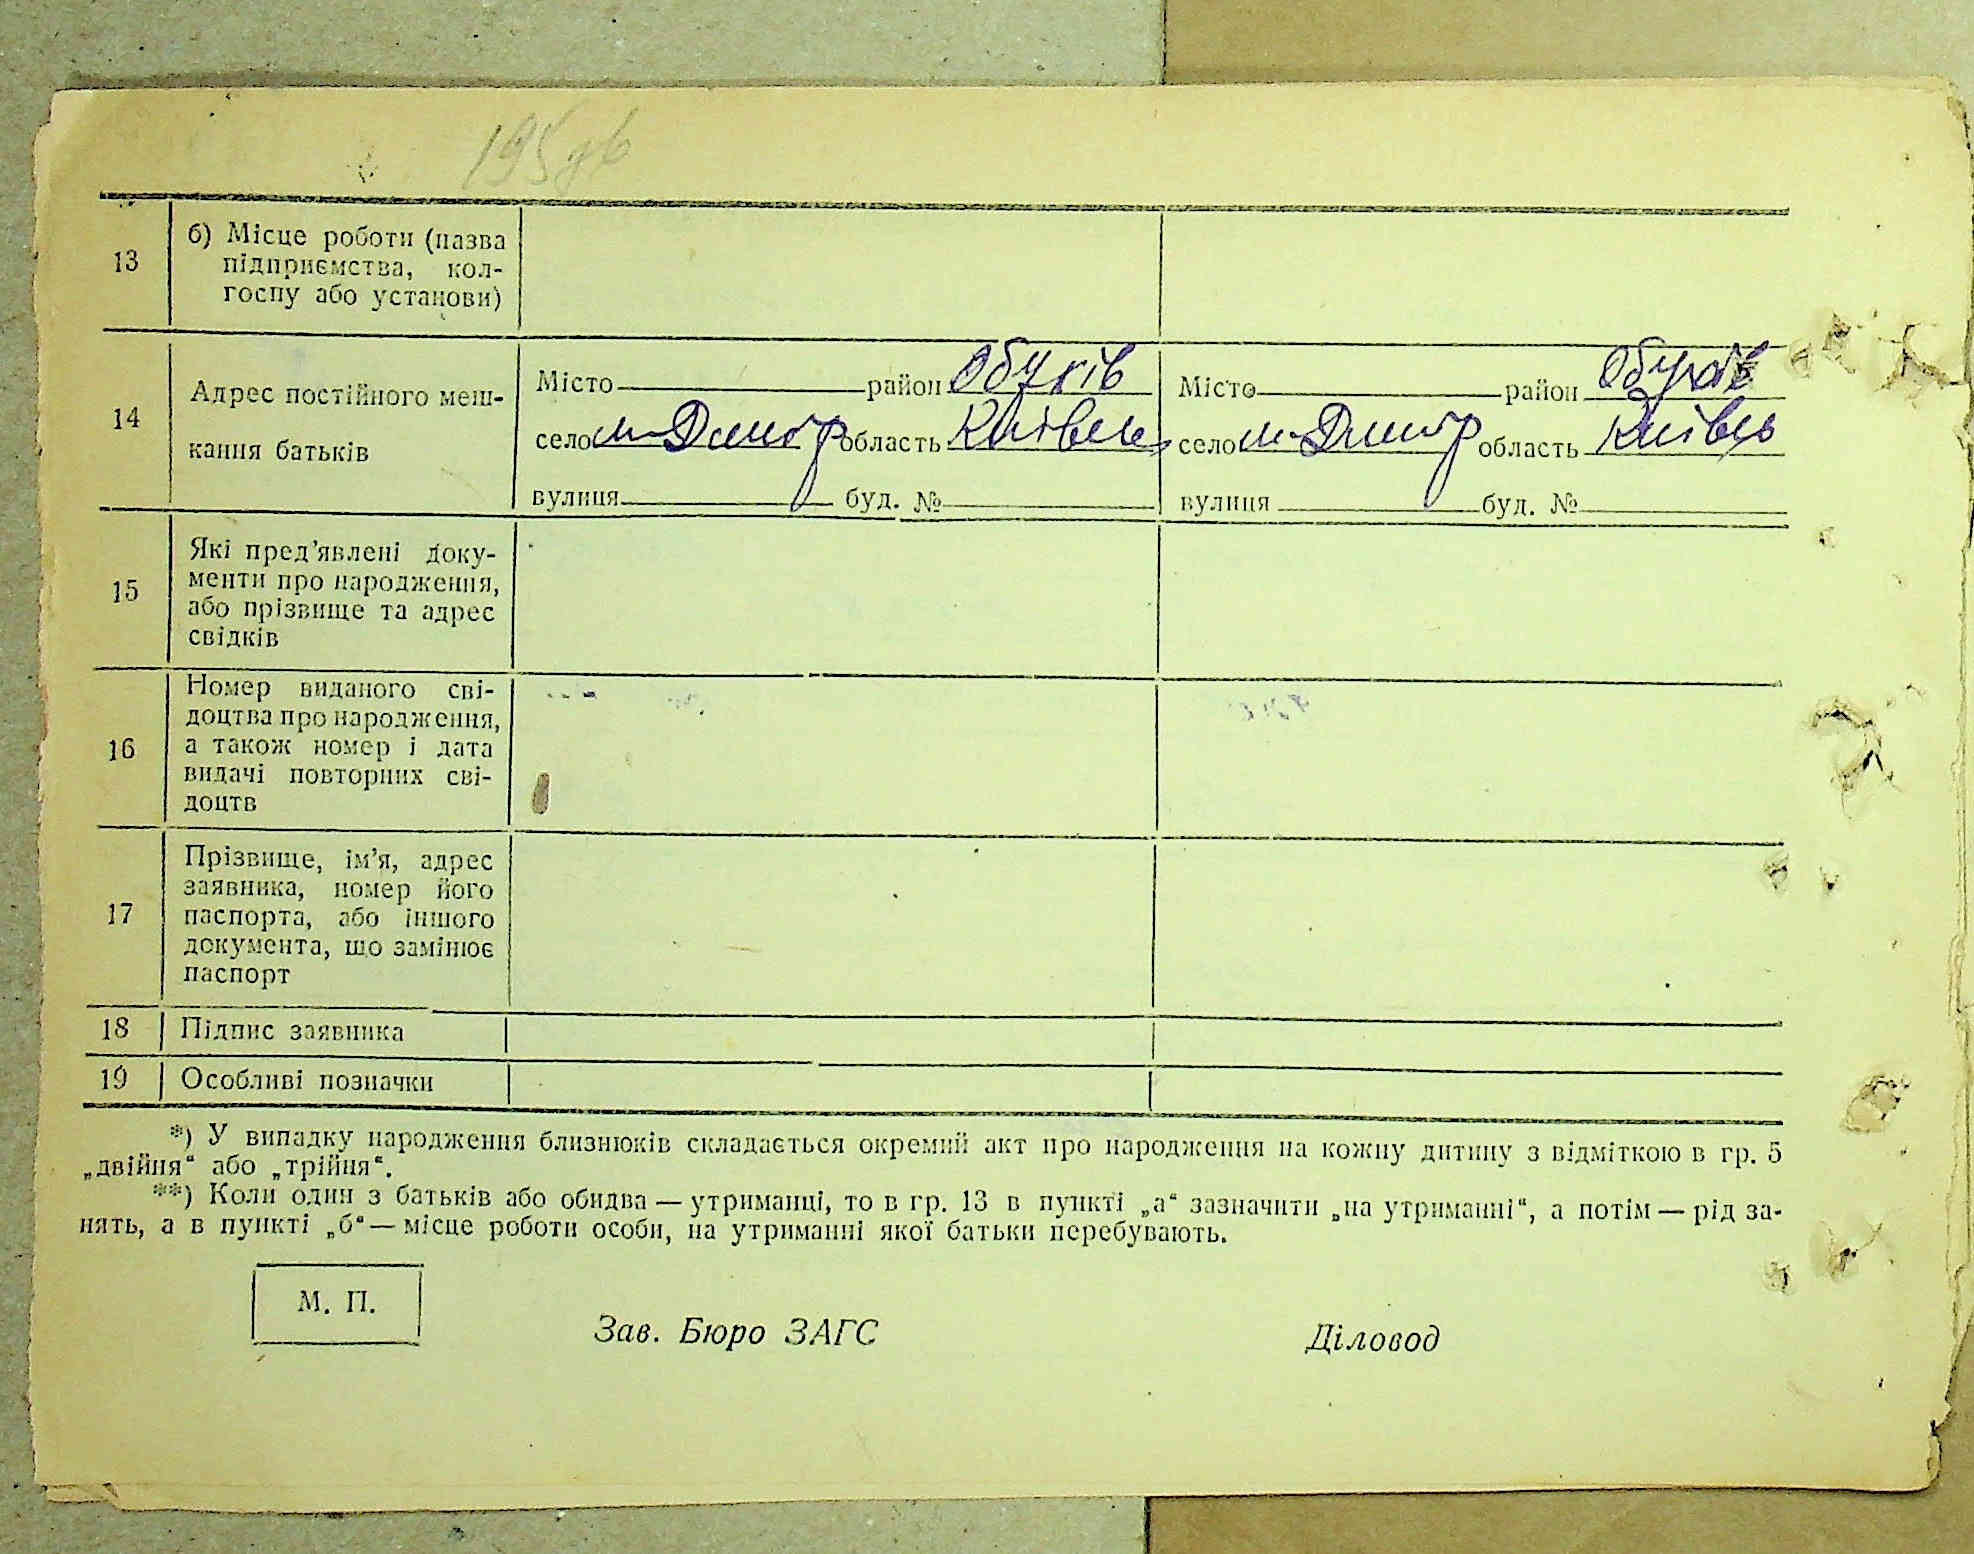 13
б) Місце роботи (назва
підприємства, кол-
госпу або установи)
14
Адрес постійного меш-
кання батьків
Місто район Обухів
село м-Дмитр область Київсь
вулиця буд. №
Місто район Обухів
село м-Дмитр область Київсь
вулиця буд. №
15
Які пред'явлені доку-
менти про народження,
або прізвище та адрес
свідків
16
Номер виданого сві-
доцтва про народження,
а також номер і дата
видачі повторних сві-
доцтв
17
Прізвище, ім'я, адрес
заявника, номер його
паспорта, або іншого
документа, що замінює
паспорт
18 Підпис заявника
19 Особливі позначки
*) У випадку народження близнюків складається окремий акт про народження на кожну дитину з відміткою в гр. 5
„двійня“ або „трійня“.
**) Коли один з батьків або обидва — утриманці, то в гр. 13 в пункті „а“ зазначити „на утриманні“, а потім — рід за-
нять, а в пункті „б“ — місце роботи особи, на утриманні якої батьки перебувають.
М. П.
Зав. Бюро ЗАГС Діловод